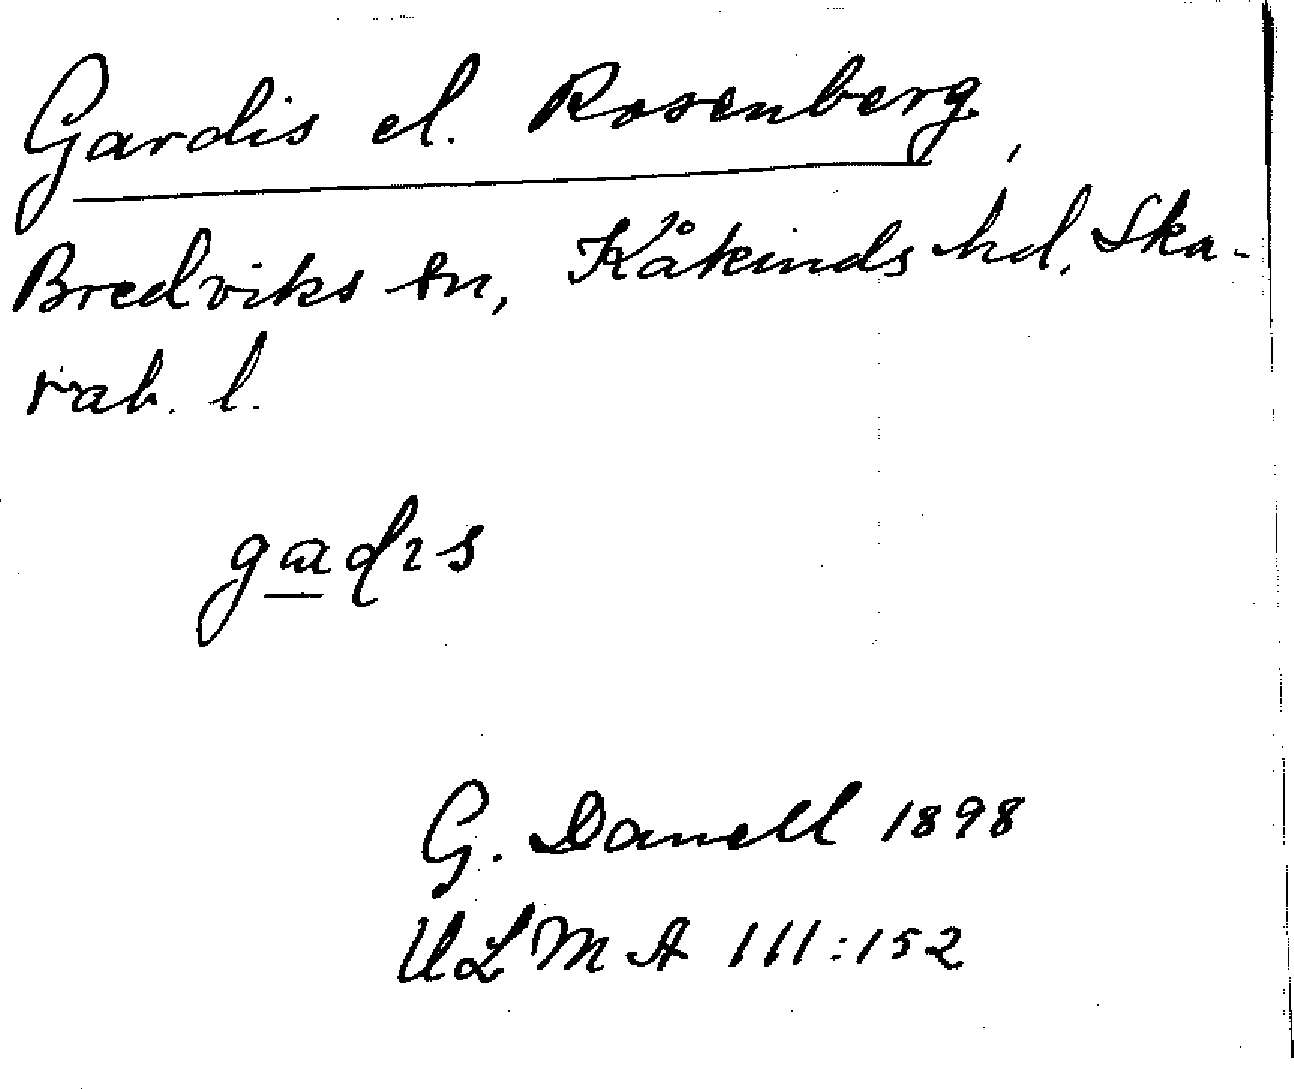 Gardis el. Rosenberg,
Bredviks sn, Kåkinds hd, Ska-
rab. l.
gadıs
G. Danell 1898
ULMA 111:152